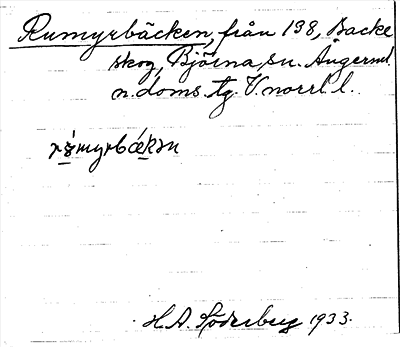 Rumyrbäcken, från 198, Backe
skog, Björna sn. Ångerml.
n. doms. tg. V. norrl. l.
H. A. Söderberg 1933.